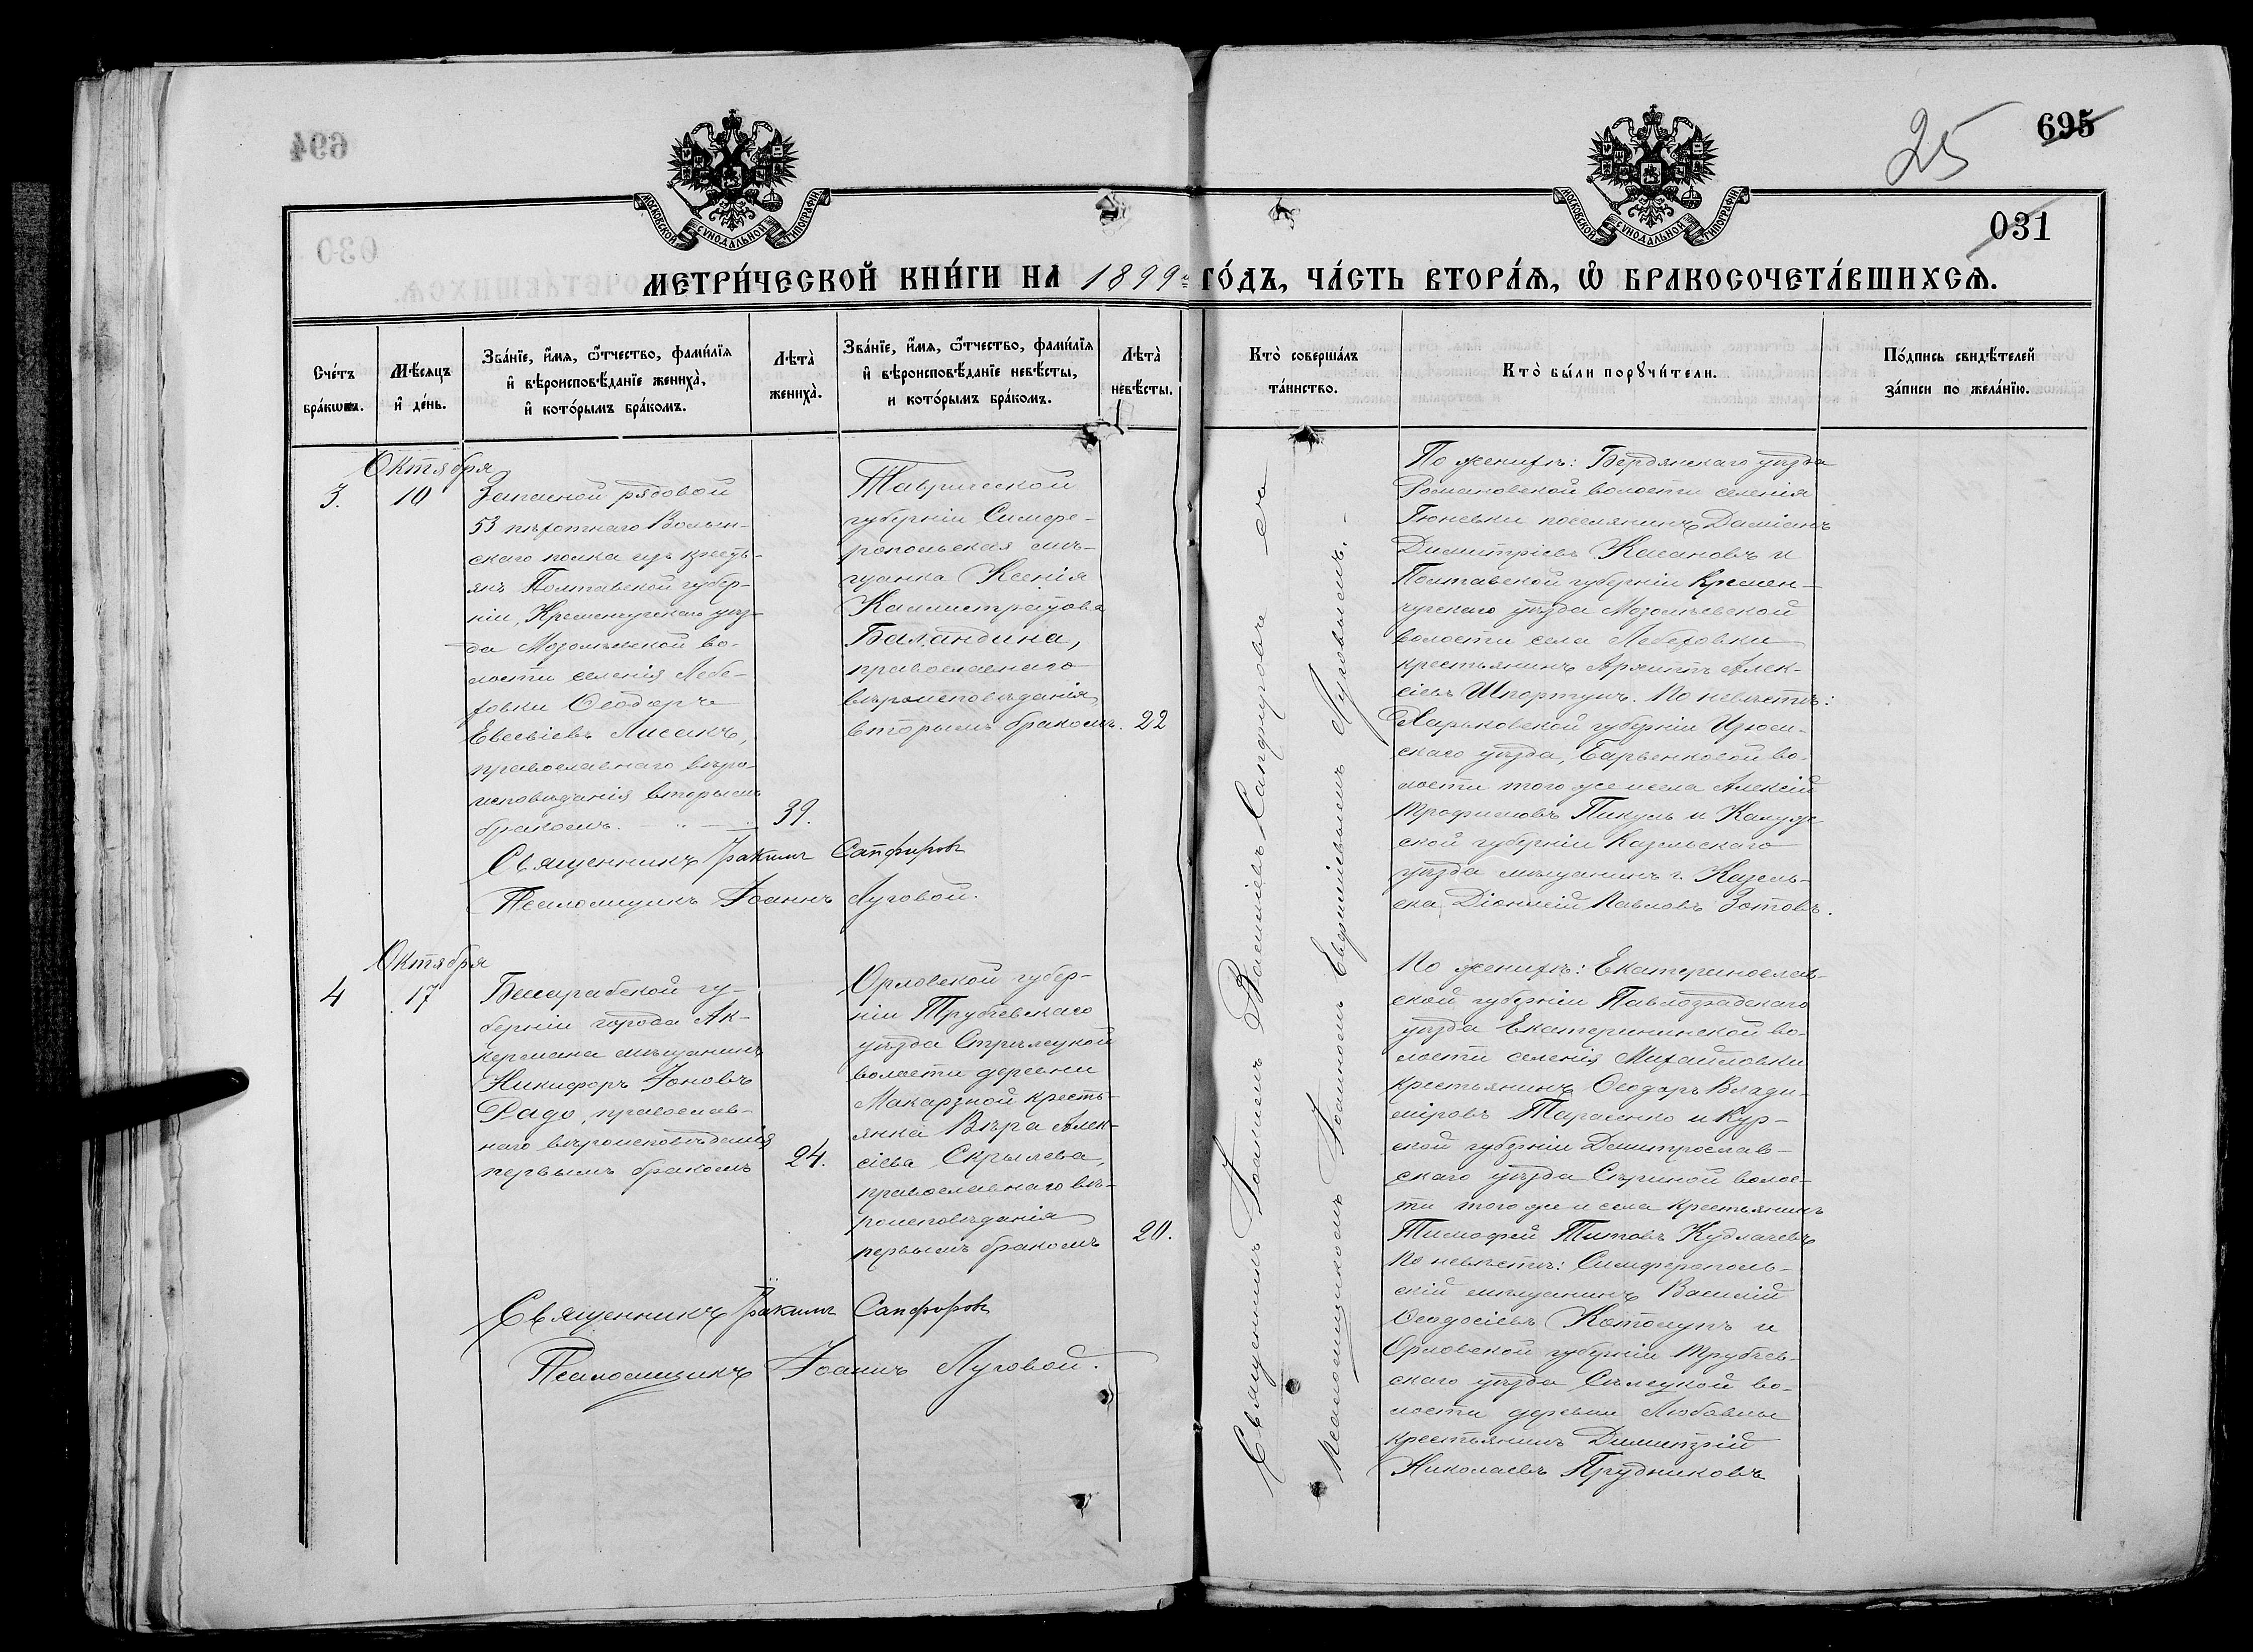 25
695
031
МОСКОВСКОЙ СѴНОДАЛЬНОЙ ТИПОГРАФІИ
МОСКОВСКОЙ СѴНОДАЛЬНОЙ ТИПОГРАФІИ
МЕТРИ́ЧЕСКОЙ КНИ́ГИ НА 1899й ГО́ДЪ, ЧА́СТЬ ВТОРА́Ѧ, Ѽ БРАКОСОЧЕТА́ВШИХСѦ.
Сче́тъ бра́кѡвъ.
Мѣ́сяцъ и҆ де́нь.
Зва́нїе, и҆́мя, ѻ҆́тчество, фами́лїя
и҆ вѣроисповѣ́данїе жениха̀,
и҆ кото́рымъ бра́комъ.
Лѣта̀ жениха̀.
Зва́нїе, и҆́мя, ѻ҆́тчество, фами́лїя
и҆ вѣроисповѣ́данїе невѣ́сты,
и кото́рымъ бра́комъ.
Лѣта̀ невѣ́сты.
Кто̀ соверша́лъ та́инство.
Кто̀ бы́ли порꙋчи́тели.
По́дпись свидѣ́телей за́писи по жела́нїю.
3.
Октября
10
Запасной рядовой
53 пѣхотнаго Волын-
скаго полка изъ кресть-
янъ Полтавской губер-
ніи, Кременчугскаго уѣз-
да Мозолѣевской во-
лости селенія Лебе-
ховки Ѳеодоръ
Евсевіевъ Лисакъ,
православнаго вѣро-
исповѣданія вторымъ
бракомъ.
39.
Таврической
губерніи Симфе-
ропольская мѣ-
щанка Ксенія
Каллистратова
Баландина,
православнаго
вѣроисповѣданія
вторымъ бракомъ.
22
Священникъ Іоакимъ Сапфировъ
Псаломщикъ Іоаннъ Луговой.
Священникъ Іоакимъ Василіевъ Сапфировъ съ
псаломщикомъ Іоанномъ Евфиміевымъ Луговымъ.
По женихѣ: Бердянскаго уѣзда
Романовской волости селенія
Гюневки поселянинъ Даміанъ
Димитріевъ Касановъ и
Полтавской губерніи Кремен-
чугскаго уѣзда Мозолѣевской
волости села Лебеховки
крестьянинъ Архиппъ Алек-
сіевъ Шпортунъ. По невѣстѣ:
Харьковской губерніи Изюм-
скаго уѣзда, Барвенковой во-
лости того же села Алексій
Трофимовъ Пикулъ и Калуж-
ской губерніи Козельскаго
уѣзда мѣщанинъ г. Козель-
ска Діонисій Павловъ Зотовъ.
4
Октября
17
Бессарабской гу-
берніи города Ак-
кермана мѣщанинъ
Никифоръ Іоновъ
Радо, православ-
наго вѣроисповѣданія
первымъ бракомъ
24.
Орловской губер-
ніи Трубчевскаго
уѣзда Стрѣлецкой
волости деревни
Макарзной кресть-
янка Вѣра Алек-
сіева Скрылева,
православнаго вѣ-
роисповѣданія
первымъ бракомъ
20.
Священникъ Іоакимъ Сапфировъ
Псаломщикъ Іоаннъ Луговой.
По женихѣ: Екатеринослав-
ской губерніи Павлоградскаго
уѣзда Екатерининской во-
лости селенія Михайловки
крестьянинъ Ѳеодоръ Влади-
міровъ Тарасенко и Кур-
ской губерніи Димитрослав-
скаго уѣзда Сѣриной волос-
ти того же села крестьянинъ
Тимофей Титовъ Кудлачевъ
По невѣстѣ: Симферополь-
скій мѣщанинъ Василій
Ѳеодосіевъ Котолупъ и
Орловской губерніи Трубчев-
скаго уѣзда Сѣлецкой во-
лости деревни
крестьянинъ Димитрій
Николаевъ Прудниковъ